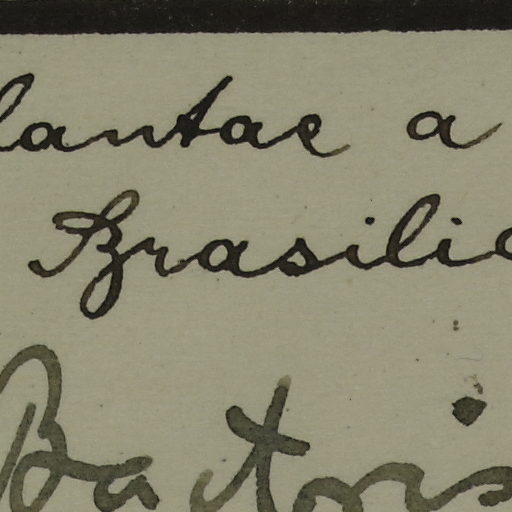 lantae a
Brasilia
Bactris